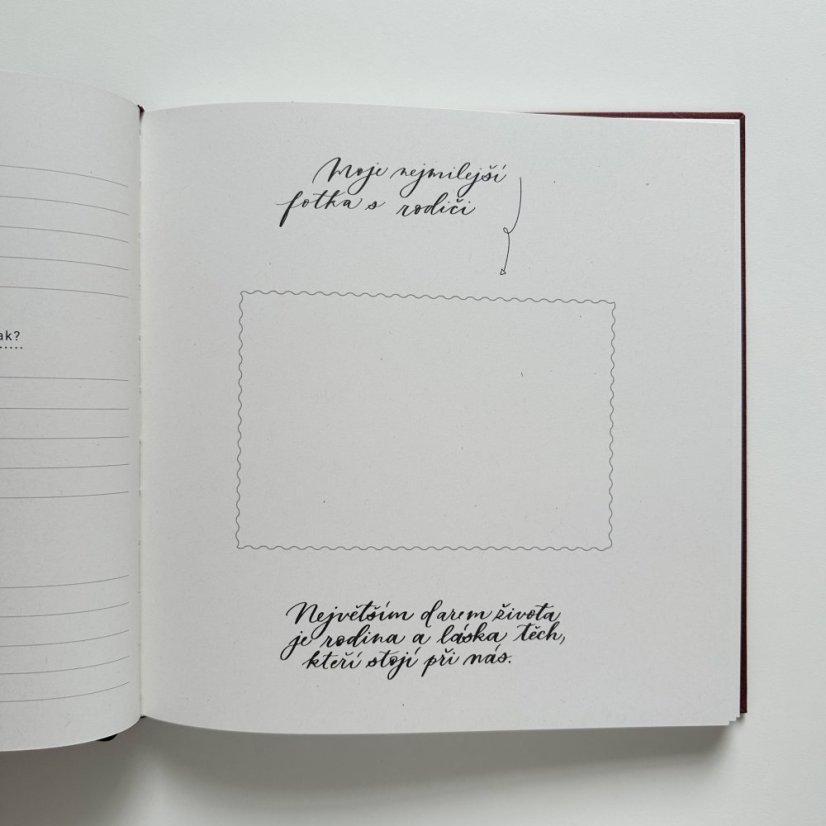 ak?
Moje nejmilejší
fotka s rodiči
Největším darem života
je rodina a láska těch,
kteří stojí při nás.